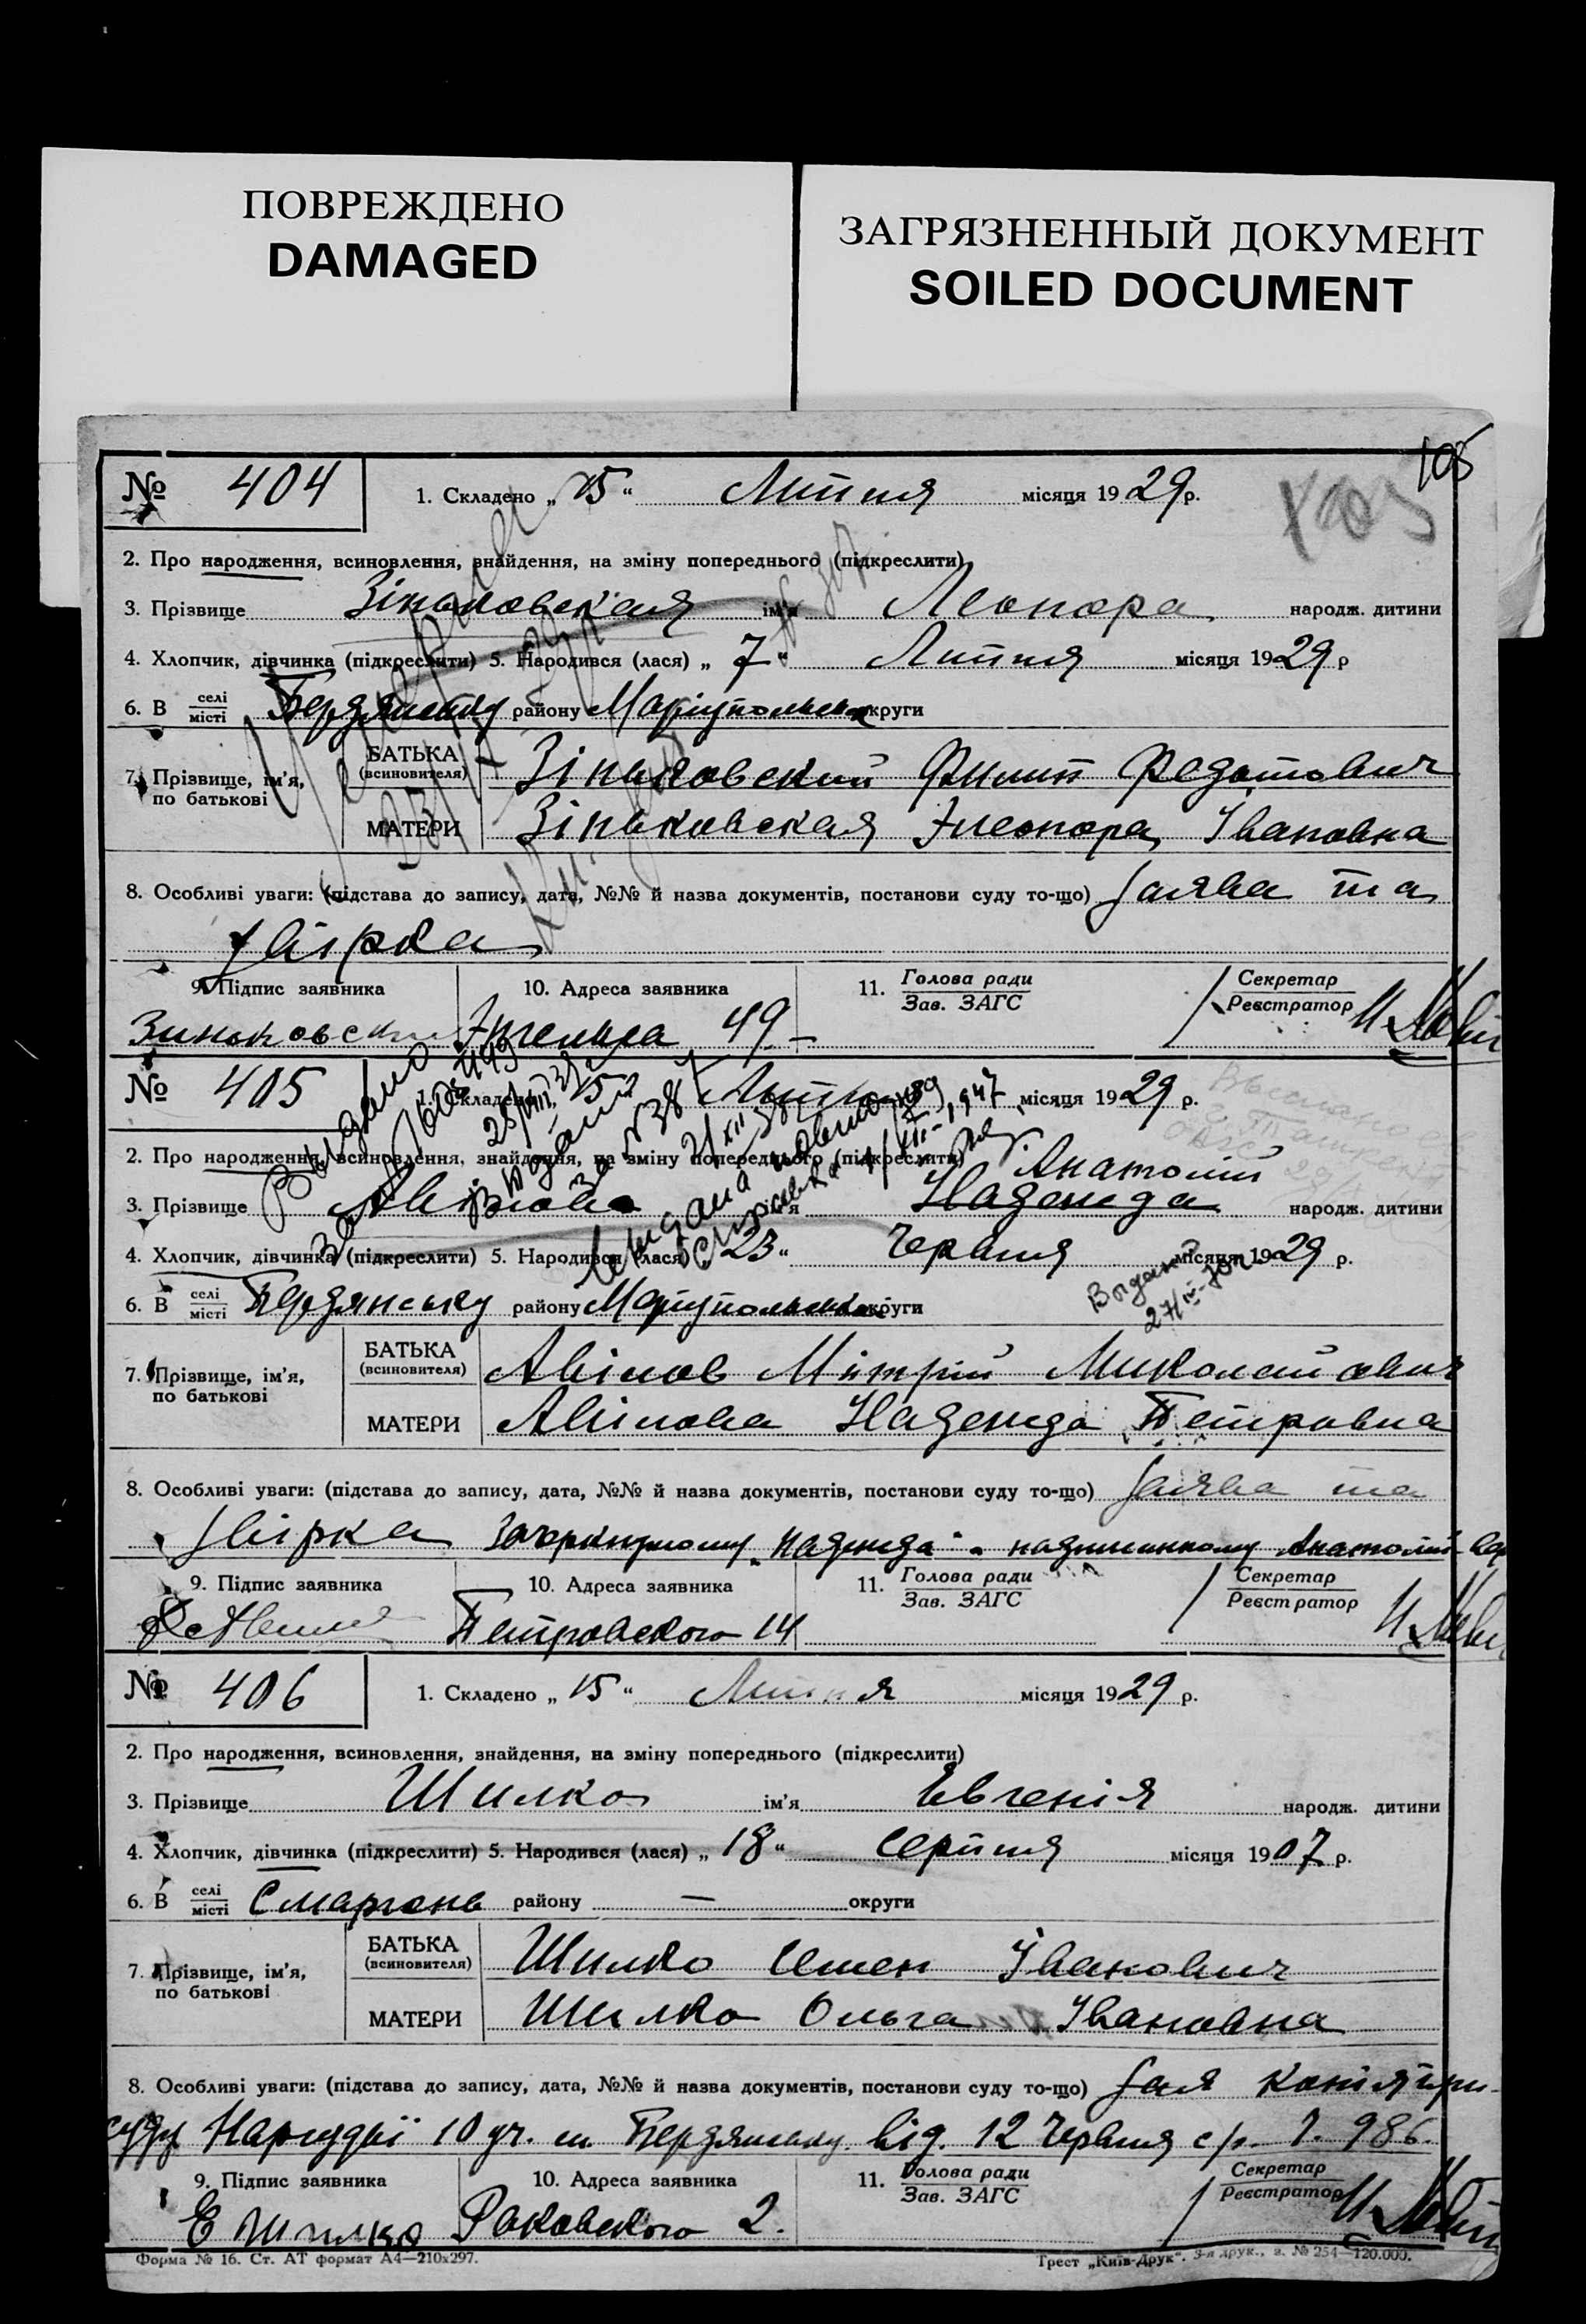 ПОВРЕЖДЕНО
DAMAGED
ЗАГРЯЗНЕННЫЙ ДОКУМЕНТ
SOILED DOCUMENT
105
№ 404 1. Складено „ 15 “ Липня місяця 1929 р.
2. Про народження, всиновлення, знайдення, на зміну попереднього (підкреслити)
3. Прізвище Зіньковская ім'я Леонора народж. дитини
4. Хлопчик, дівчинка (підкреслити) 5. Народився (лася) „ 7 “ Липня місяця 1929 р
6. В селі місті Бердянську району Маріупольськ округи
7. Прізвище, ім'я, по батькові
БАТЬКА (всиновителя) Зіньковский Филип Федотович
МАТЕРИ Зіньковская Элеонора Івановна
8. Особливі уваги: (підстава до запису, дата, №№ й назва документів, постанови суду то-що) Заява та
звірка
9. Підпис заявника 10. Адреса заявника 11. Голова ради Зав. ЗАГС Секретар Реєстратор
Зиньковский Энгельса 49
№ 405 1. Складено „ 15 “ Липня місяця 1929 р.
2. Про народження, всиновлення, знайдення, на зміну попереднього (підкреслити)
Анатолій
3. Прізвище Авілова ім'я Надежда народж. дитини
4. Хлопчик, дівчинка (підкреслити) 5. Народився (лася) „ 23 “ Червня місяця 1929 р.
6. В селі місті Бердянську району Маріупольськ округи
Видано
7. Прізвище, ім'я, по батькові
БАТЬКА (всиновителя) Авілов Мітрій Миколайович
МАТЕРИ Авілова Надежда Петровна
8. Особливі уваги: (підстава до запису, дата, №№ й назва документів, постанови суду то-що) Заява та
звірка Зачеркнутому „Надежда“ надписанному Анатолий
9. Підпис заявника 10. Адреса заявника 11. Голова ради Зав. ЗАГС Секретар Реєстратор
Петровского 14
№ 406 1. Складено „ 15 “ Липня місяця 1929 р.
2. Про народження, всиновлення, знайдення, на зміну попереднього (підкреслити)
3. Прізвище Шилко ім'я Евгенія народж. дитини
4. Хлопчик, дівчинка (підкреслити) 5. Народився (лася) „ 18 “ Серпня місяця 1907 р.
6. В селі місті Сморгонь району — округи
7. Прізвище, ім'я, по батькові
БАТЬКА (всиновителя) Шилко Семен Іванович
МАТЕРИ Шилко Ольга Івановна
8. Особливі уваги: (підстава до запису, дата, №№ й назва документів, постанови суду то-що) Зая копія при-
суду Нарсудьї 10 уч. м. Бердянську від. 12 Червня с/р. 986.
9. Підпис заявника 10. Адреса заявника 11. Голова ради Зав. ЗАГС Секретар Реєстратор
Е Шилко Раковского 2.
Форма № 16. Ст. АТ формат А4—210х297.
Трест „Київ-Друк“. 3-я друк., з. № 254—120.000.